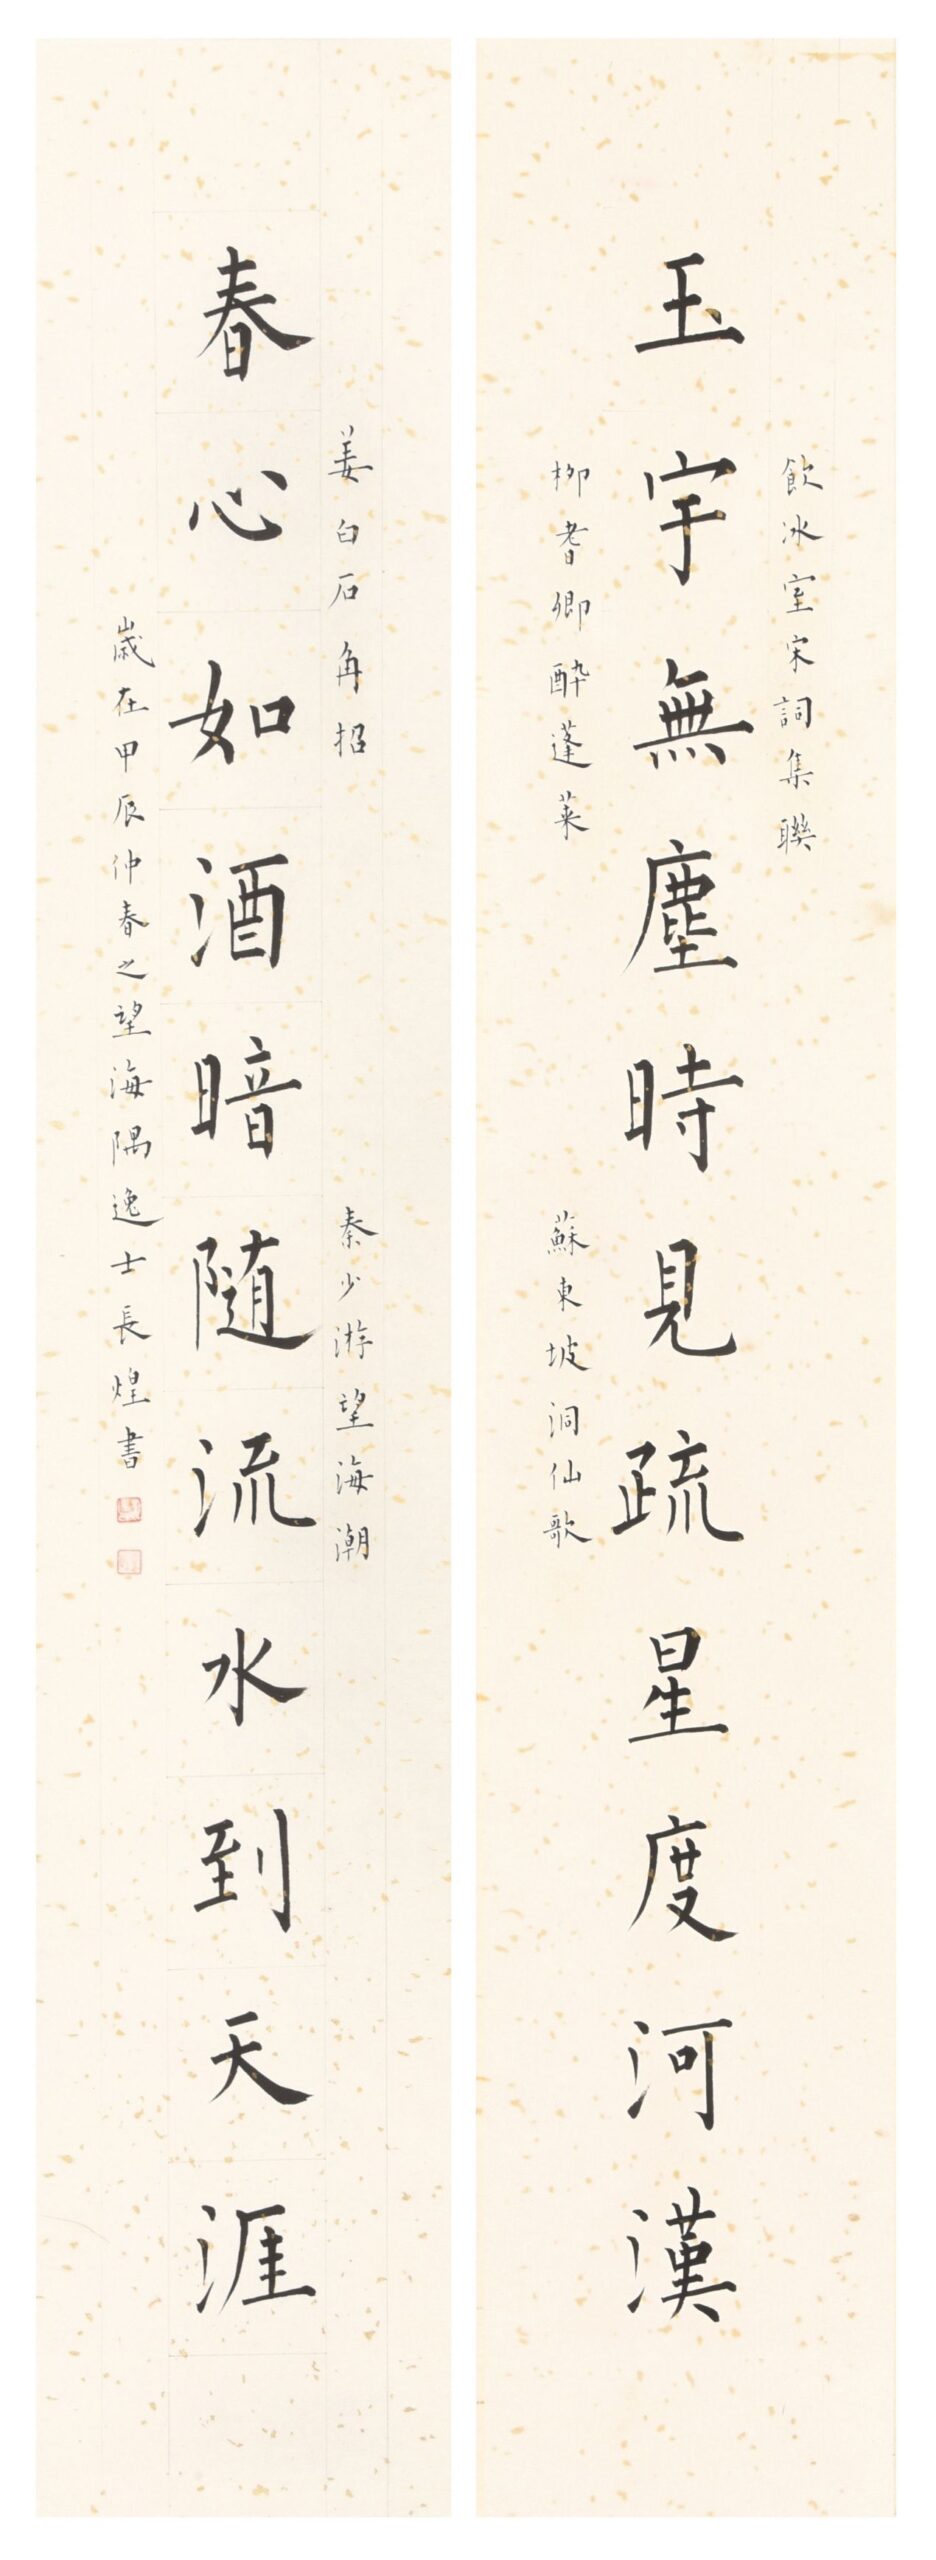 飲冰室宋詞集聯
玉宇無塵時見疏星度河漢
柳耆卿醉蓬萊
蘇東坡洞仙歌
姜白石角招
秦少游望海潮
春心如酒暗隨流水到天涯
歲在甲辰仲春之望海隅逸士長煌書